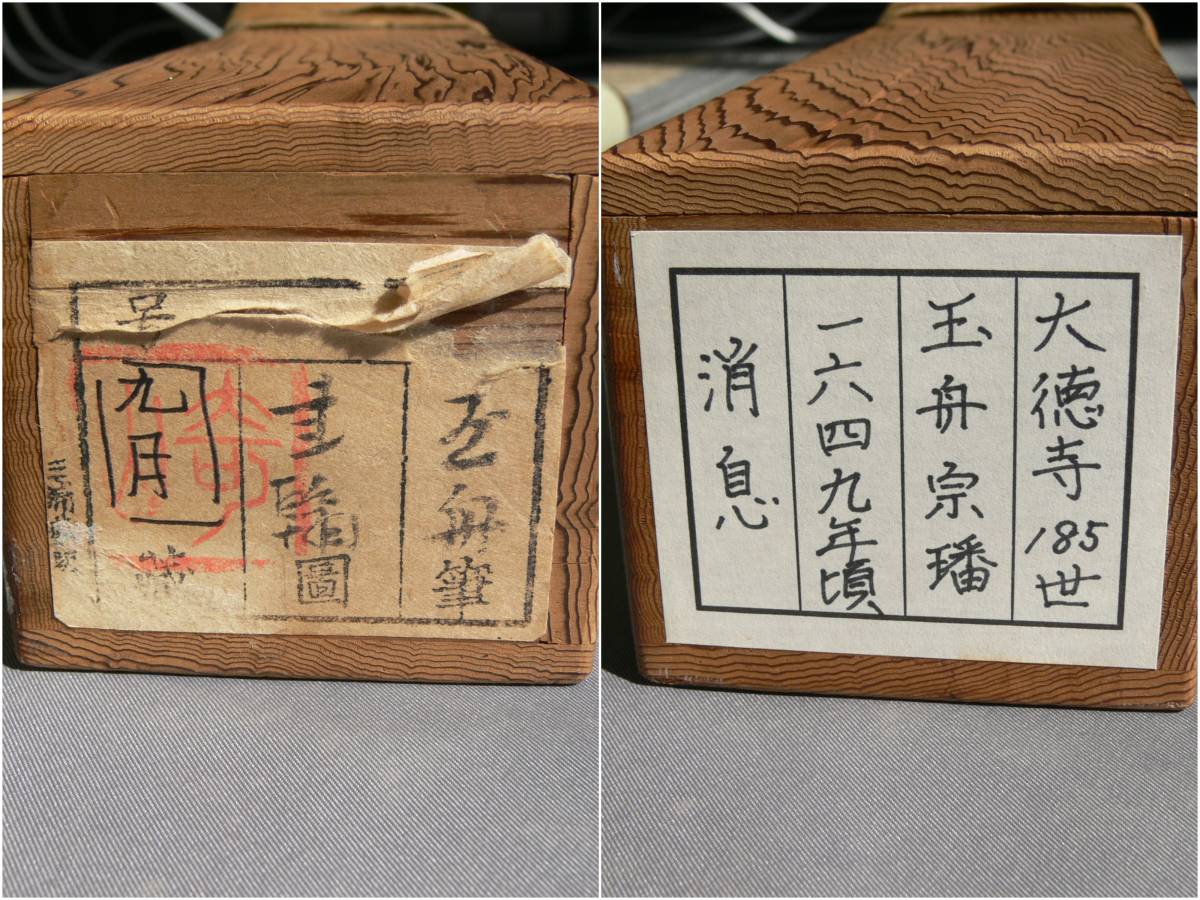 玉舟筆
圖
九月
大徳寺185世
玉舟宗璠
一六四九年頃
消息